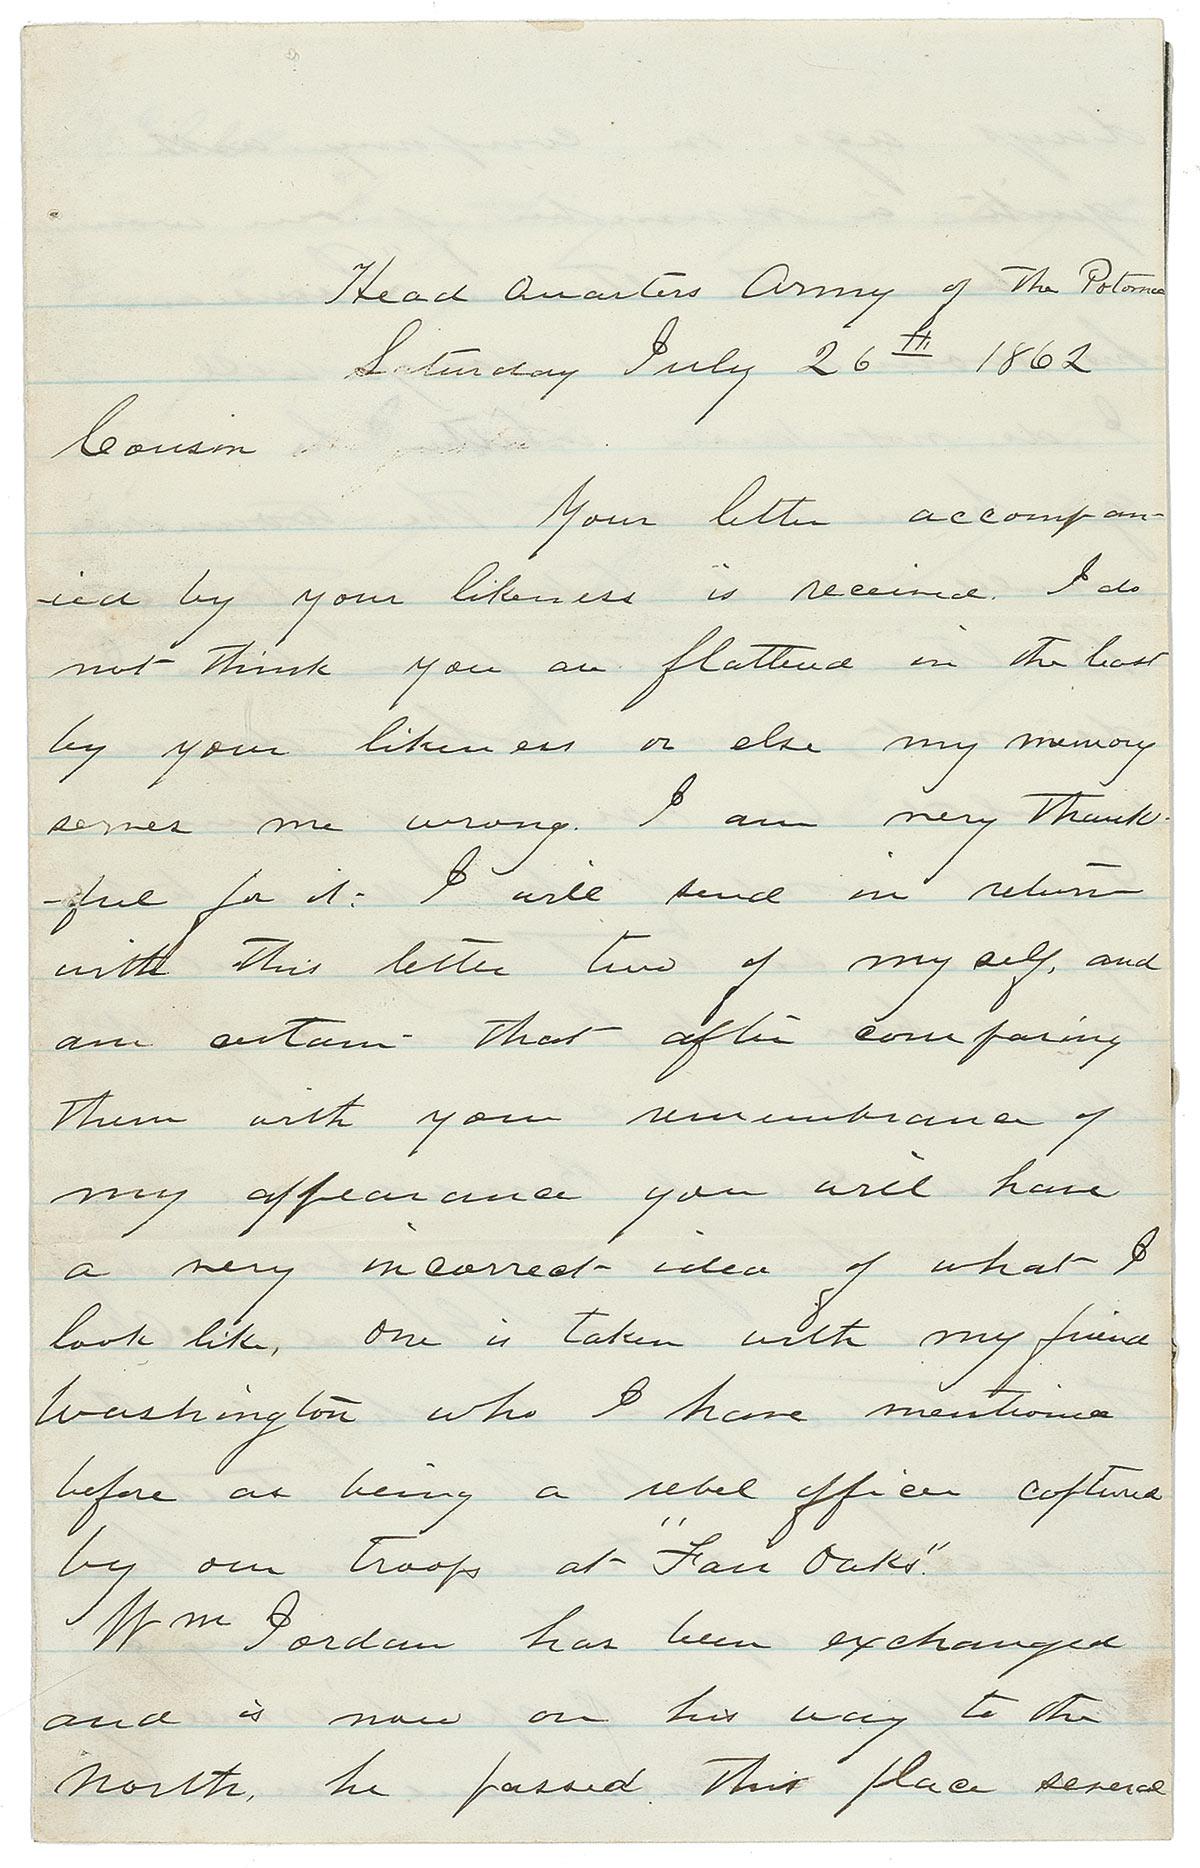 Head Quarters Army of the Potomac
Saturday July 26th 1862
Cousin
Your letter accompan-
-ied by your likeness is received. I do
not think you are flattered in the least
by your likeness or else my memory
serves me wrong. I am very thank-
-ful for it. I will send in return
with this letter two of myself, and
am certain that after comparing
them with your remembrance of
my appearance you will have
a very incorrect idea of what I
look like, One is taken with my friend
Washington who I have mentioned
before as being a rebel officer captured
by our troops at "Fair Oaks".
Wm Jordan has been exchanged
and is now on his way to the
North, he passed this place several